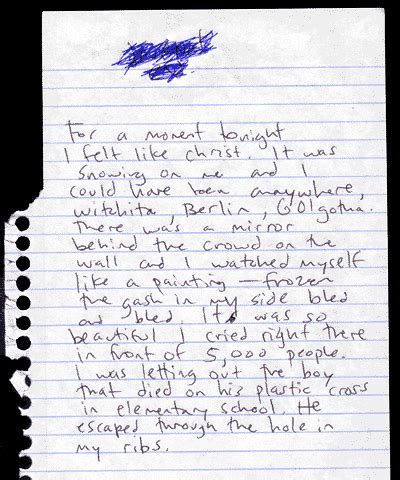 For a moment tonight
I felt like christ. It was
snowing on me and I
could have been anaywhere,
witchita, Berlin, GOlgotha.
There was a mirror
behind the crowd on the
wall and I watched myself
like a painting — frozen
the gash in my side bled
and bled. It was so
beautiful I cried right there
in front of 5,000 people.
I was letting out the boy
that died on his plastic cross
in elementary school. He
escaped through the hole in
my ribs.